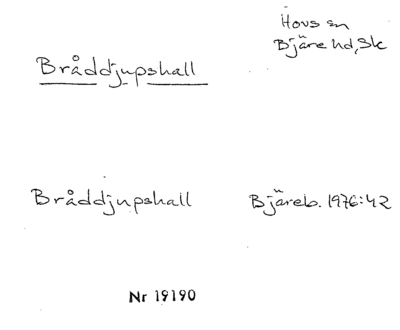 Hovs sn
Bjäre hd, Sk
Bråddjupshall
Bråddjupshall Bjäreb. 1976:42
Nr 19190